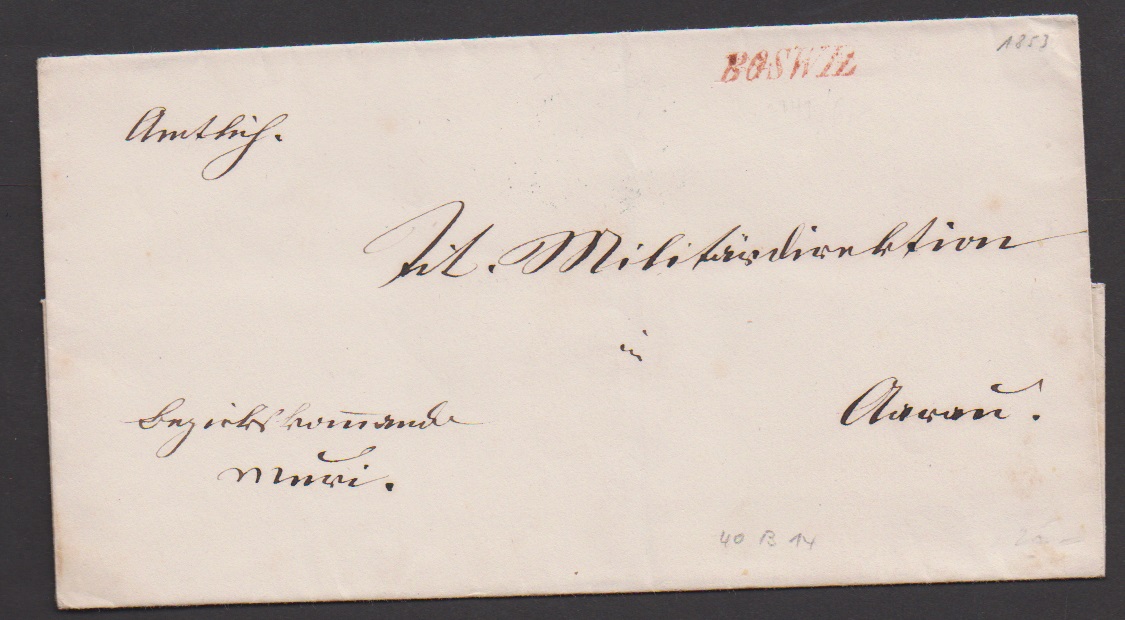 1853
BOSWIL
Amtlich.
Tit. Militärdirektion
in
Aarau.
Bezirkskommando
Muri.
40 B 14